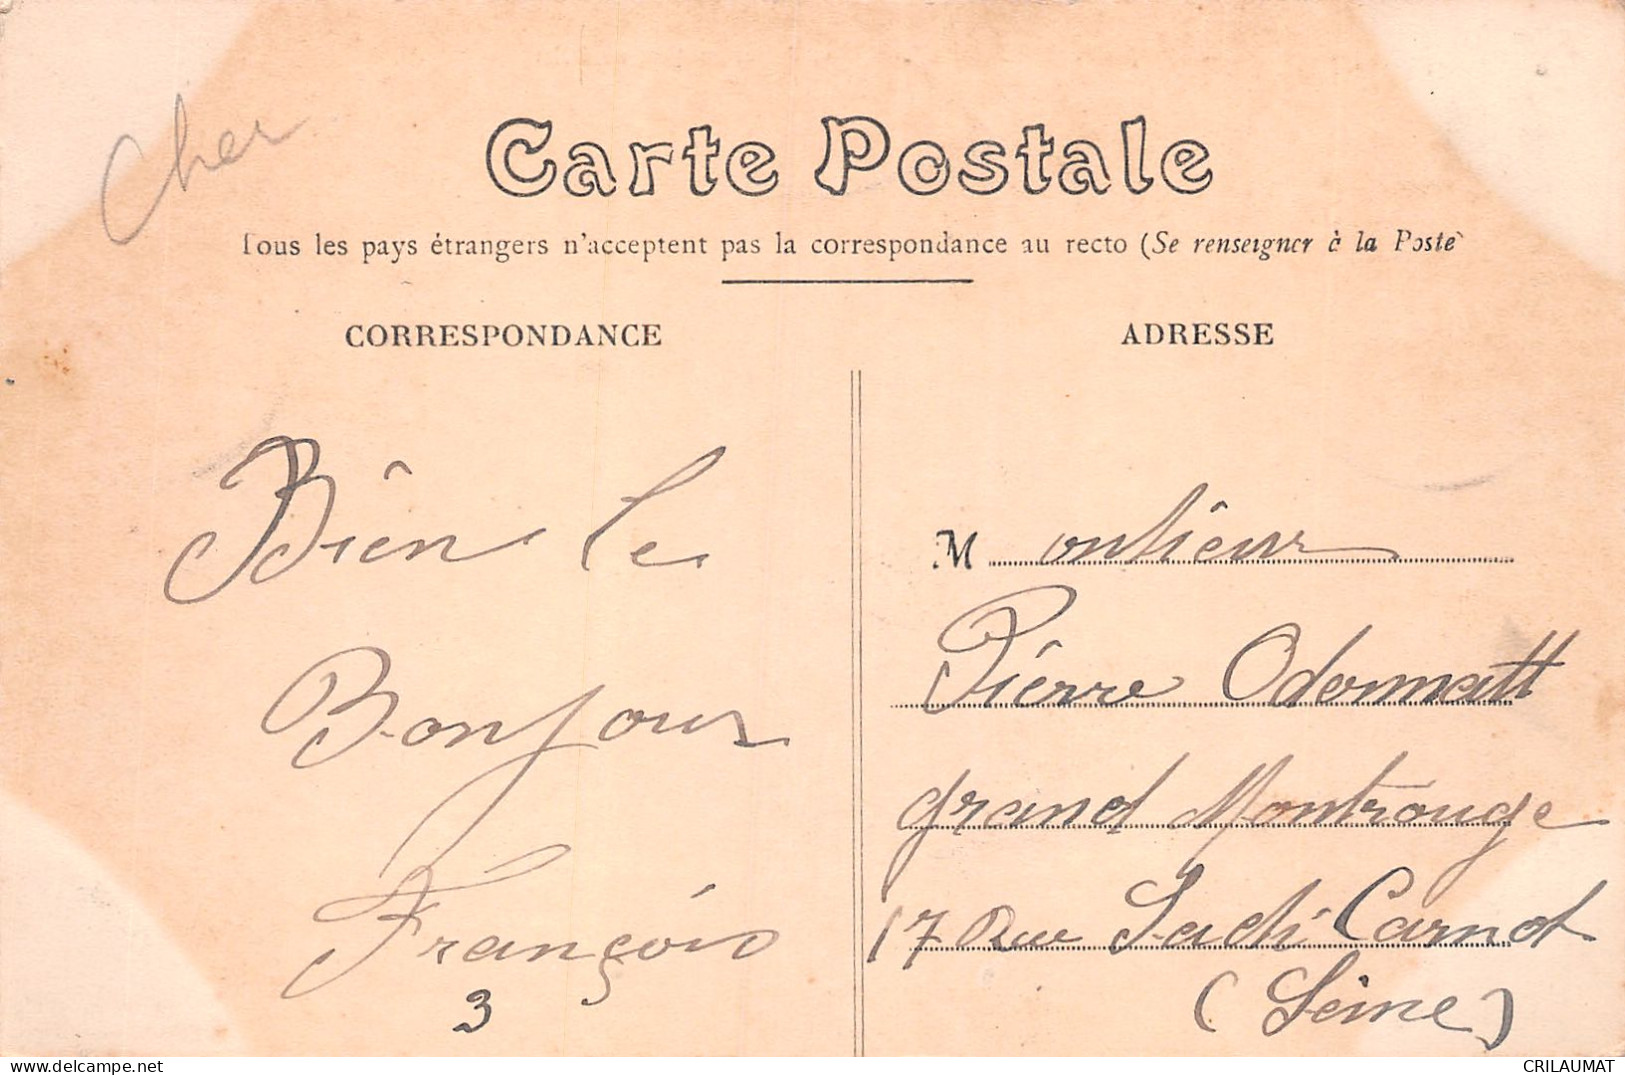 Cher
Carte Postale
Tous les pays étrangers n'acceptent pas la correspondance au recto (Se renseigner à la Poste)
CORRESPONDANCE
Bien le
Bonjour
François
3
ADRESSE
Monsieur
Pierre Odermatt
grand Montrouge
17 Rue Sadi Carnot
(Seine)
delcampe.net
CRILAUMAT